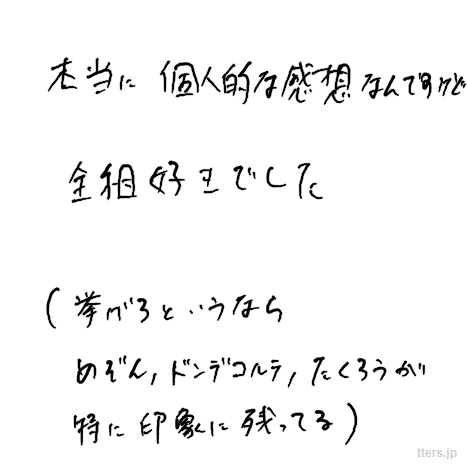 本当に個人的な感想なんですけど
全組好きでした
(挙げろというなら
めぞん,ドンデコルテ,たくろうが
特に印象に残ってる)
tters.jp